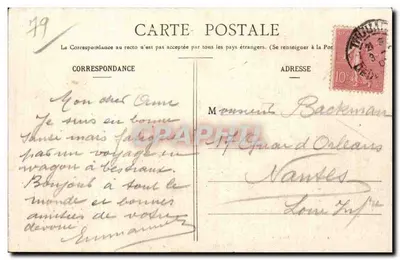 79
CARTE POSTALE
La Correspondance au recto n'est pas acceptée par tous les pays étrangers. (Se renseigner à la Pos
CORRESPONDANCE
ADRESSE
Mon cher
Je suis en bonne
santé mais
pas un voyage en
wagon à bestiaux.
Bonjour à tout le
monde et bonnes
amitiés de votre
dévoué
Emmanuel
Monsieur Backman
17 Quai d'Orléans
Nantes
Loire Infre
THOUARS
10
CPARAMA